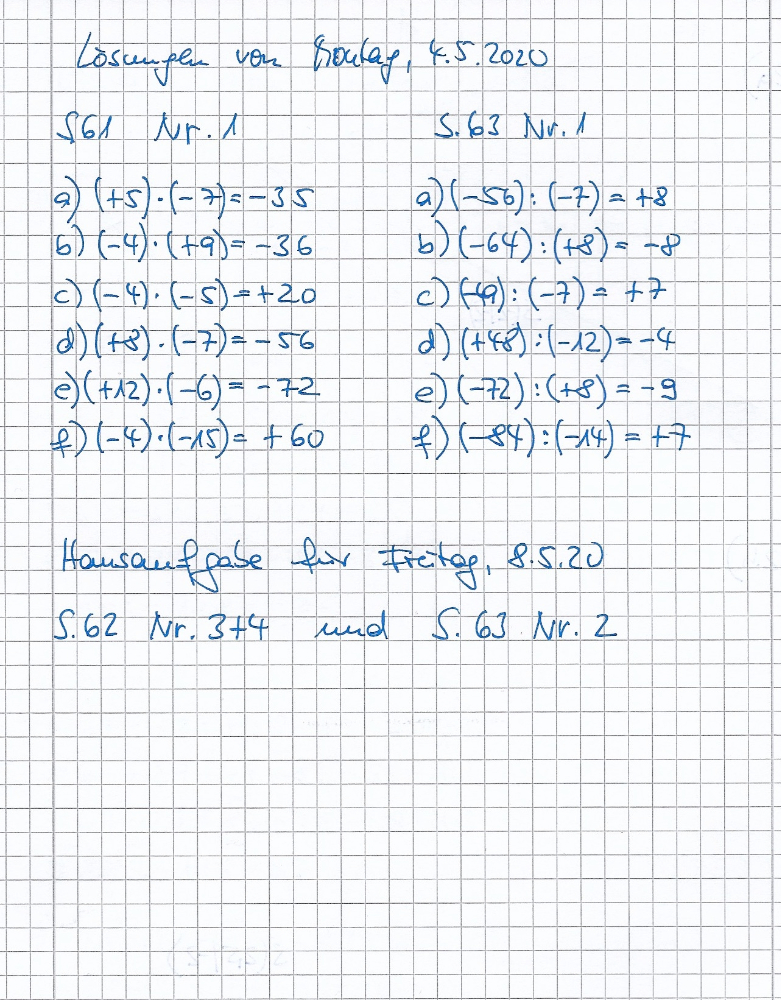 Lösungen von Montag, 4.5.2020
S61 Nr. 1
a) (+5)·(-7)=-35
b) (-4)·(+9)=-36
c) (-4)·(-5)=+20
d) (+8)·(-7)=-56
e) (+12)·(-6)=-72
f) (-4)·(-15)=+60
S.63 Nr.1
a) (-56):(-7)=+8
b) (-64):(+8)=-8
c) (-49):(-7)=+7
d) (+48):(-12)=-4
e) (-72):(+8)=-9
f) (-84):(-14)=+7
Hausaufgabe für Freitag, 8.5.20
S.62 Nr. 3+4 und S. 63 Nr. 2